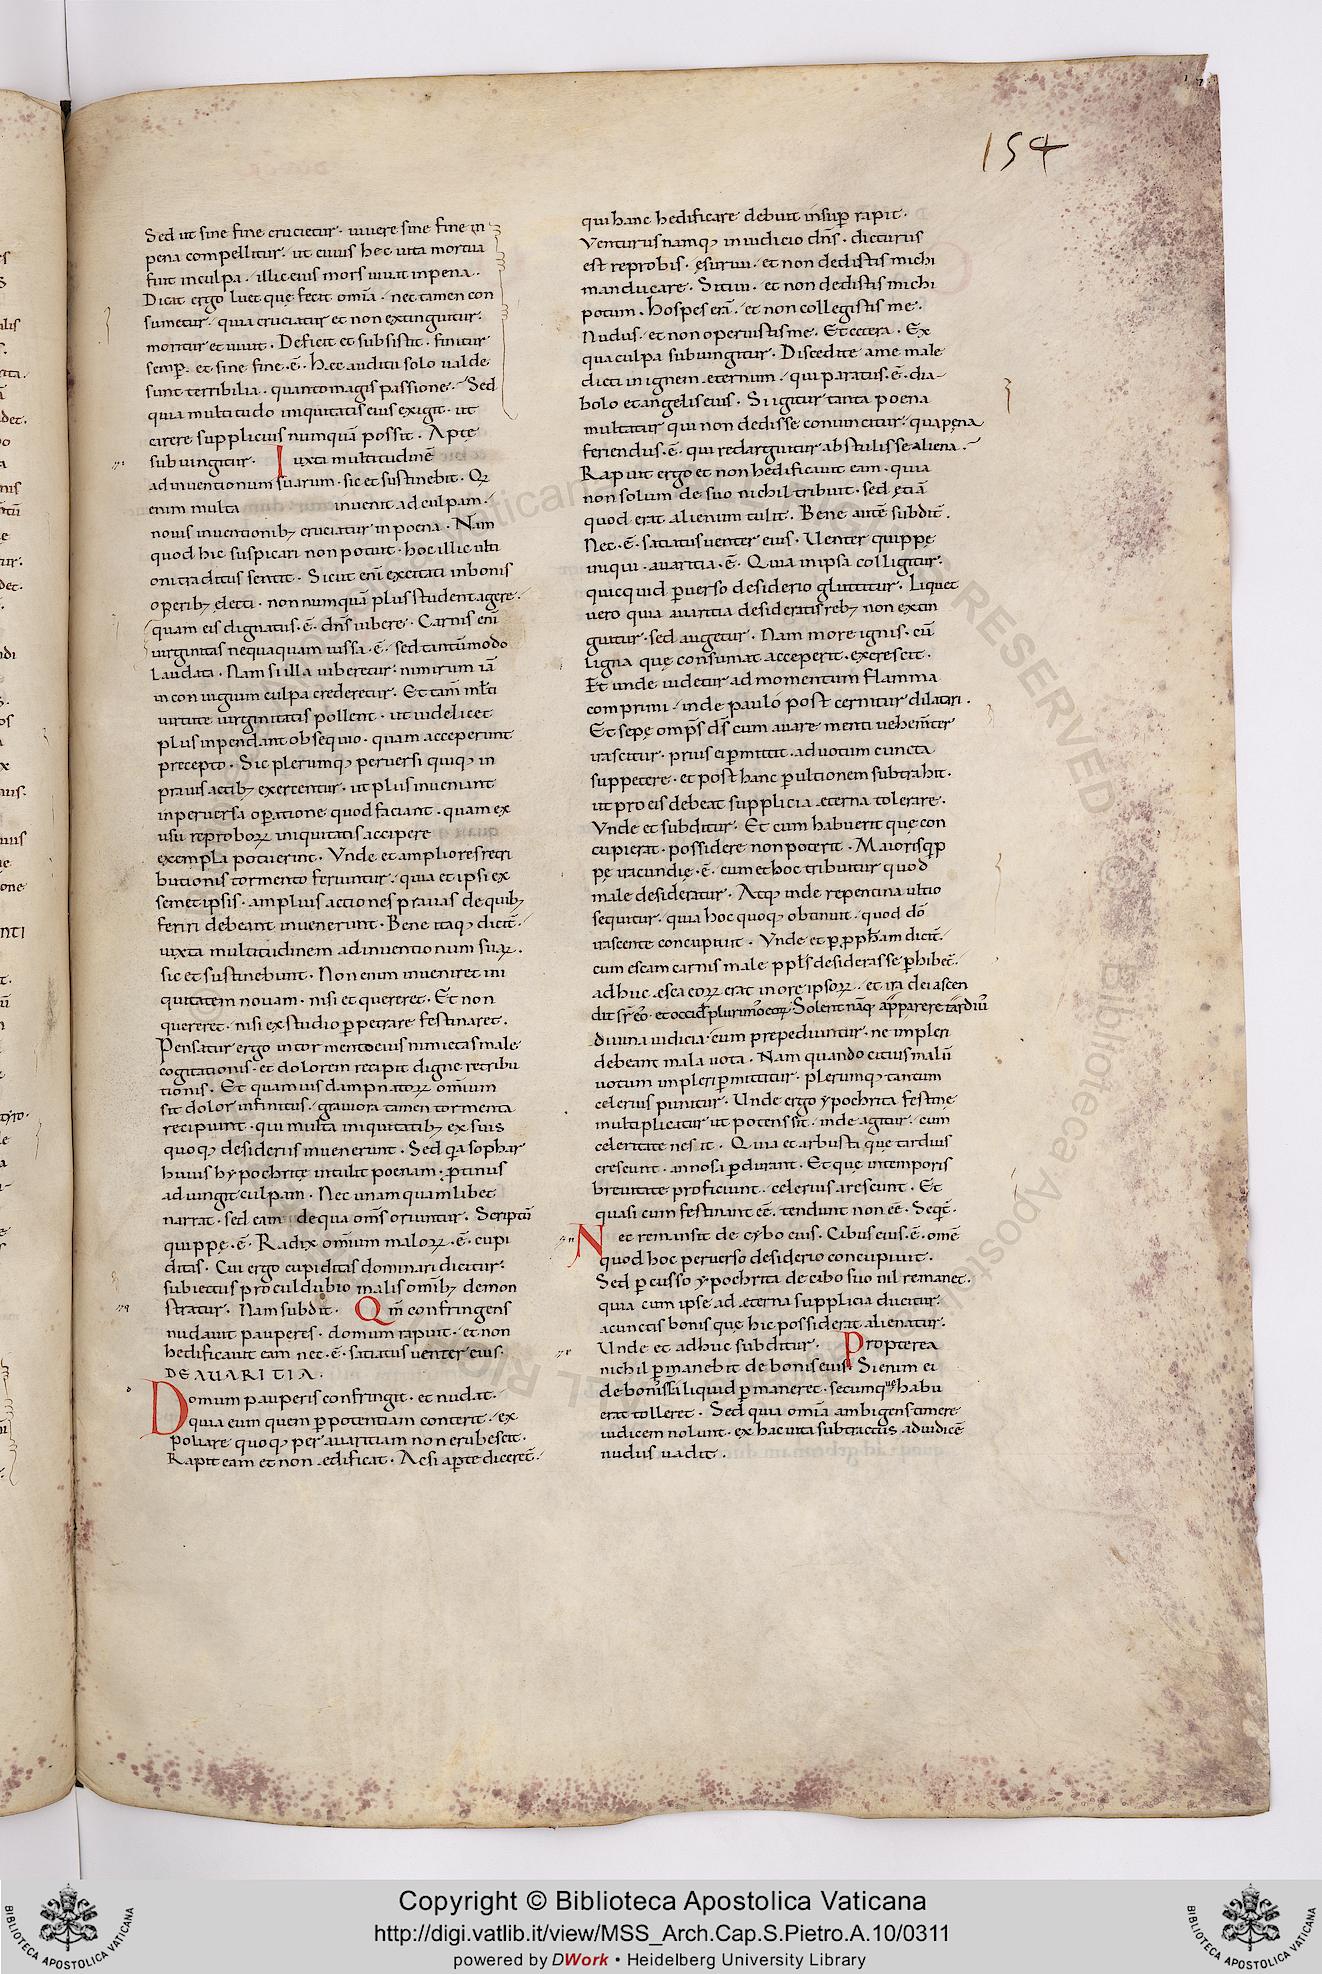 154
Sed ut sine fine crucietur · vivere sine fine in
pena compellitur · ut cuius hec uita mortua
fuit in culpa · illic eius mors uiuat in pena ·
Dicit ergo luet quę fecit om̄ia · nec tamen con
sumetur · quia cruciatur et non extinguitur ·
moritur et uiuit · Deficit et subsistit · finitur
semp̄ et sine fine · ē · Hec auditu solo ualde
sunt terribilia · quantomagis passione · Sed
quia multitudo iniquitatis eius exigit · ut
carere suppliciis numquā possit · Apte
subiungitur · Iuxta multitudinē
adinventionum suarum · sic et sustinebit · Q
enim multa invenit ad culpam ·
nouis inventionib; cruciatur in poena · Nam
quod hic suspicari non potuit · hoc illic ulti
oni traditus sentit · Sicut eni exercitati in bonis
operib; electi · non numquā plus student agere ·
quam eis dignatus · ē · dn̄s iubere · Carnis enī
uirginitas nequaquam iussa · ē · sed tantūmodo
laudata · Nam si illa iuberetur · nimirum iā
in coniugium culpa crederetur · Et tam̄ mlti
uirtute uirginitatis pollent · ut uidelicet
plus inpendant obsequio · quam acceperunt
precepto · Sic plerumq; peruersi quiq; in
prauis actib; exercentur · ut plus inueniant
in peruersa op̄atione quod faciant · quam ex
usu reproboꝝ iniquitatis accipere
exempla potuerint · Vnde et ampliores retri
butionis tormento feriuntur · quia et ipsi ex
semet ipsis · amplius actiones prauas de quib;
feriri debeant invenerunt · Bene itaq; dicit ·
iuxta multitudinem adinuentionum suaꝝ ·
sic et sustinebunt · Non enim inueniret ini
quitatem nouam · nisi et quereret · Et non
quereret · nisi ex studio p̄petrare festinaret ·
Pensatur ergo in tormento eius nimietas male
cogitationis · et dolorem recipit digne retribu
tionis · Et quamuis dampnatoꝝ om̄ium
sit dolor infinitus · grauiora tamen tormenta
recipiunt · qui multa iniquitatib; ex suis
quoq; desideriis inuenerunt · Sed q̄a sophar
huius hypochritę intulit poenam · p̄tinus
adiungit culpam · Nec unam quamlibet
narrat · sed eam de qua oms oriuntur · Scriptū
quippę · ē · Radix om̄ium maloꝝ · ē · cupi
ditas · Cui ergo cupiditas dominari dicitur ·
subiectus procul dubio malis omib; demon
stratur · Nam subdit · Qm̄ confringens
nudauit pauperes · domum rapuit · et non
hedificauit eam nec · ē · satiatus venter eius ·
DE AVARITIA ·
Domum pauperis confringit · et nudat ·
quia eum quem p̄ potentiam conterit · ex
poliare quoq; per auaritiam non erubescit ·
Rapit eam et non ędificat · Ac si ap̄te diceret̄ ·
qui hanc hedificare debuit insup̄ rapit ·
Venturus namq; in iudicio dn̄s · dicturus
est reprobis · ęsuriui · et non dedistis michi
manducare · Sitiui · et non dedistis michi
potum · Hospes erā · et non collegistis me ·
Nudus · et non operuistis me · Et cetera · Ex
qua culpa subiungitur · Discedite a me male
dicti in ignem ęternum · qui paratus · ē · dia
bolo et angelis eius · Si igitur tanta poena
multatur qui non dedisse conuincitur · qua pęna
feriendus · ē · qui redarguitur abstulisse aliena ·
Rapuit ergo et non hedificauit eam · quia
non solum de suo nichil tribuit · sed ętiā
quod erat alienum tulit · Bene autē subdit ·
Nec · ē · satiatus venter eius · Venter quippę
iniqui · auaritia · ē · Quia in ipsa colligitur ·
quicquid p̄uerso desiderio gluttitur · Liquet
vero quia auaritia desideratis reb; non extin
guitur · sed augetur · Nam more ignis · cū
ligna quę consumat acceperit · excrescit ·
Et unde uidetur ad momentum flamma
comprimi · inde paulo post cernitur dilatari ·
Et sepę omp̄s ds̄ cum auare menti uehem̄ter
irascitur · prius ei p̄mittit · ad uotum cuncta
suppetere · et post hanc p̄ ultionem subtrahit ·
ut pro eis debeat supplicia ęterna tolerare ·
Vnde et subditur · Et cum habuerit que con
cupierat · possidere non poterit · Maioris q̄p
pę iracundię · ē · cum et hoc tribuitur quod
male desideratur · Atq; inde repentina ultio
sequitur · quia hoc quoq; obtinuit · quod dō
irascente concupiuit · Vnde et p̄ p̄pham dicit̄ ·
cum escam carnis male ppl̄s desiderasse p̄hibet̄ ·
adhuc ęsca eoꝝ erat in ore ipsoꝝ · et ira dei ascen
dit sr̄ eō · et occid̄ plurimo eoꝝ · Solent nāq; apparere tardiū
diuina iudicia · cum prepediuntur · ne impleri
debeant mala uota · Nam quando citius malū
uotum impleri p̄mittitur · plerumq; tantum
celerius punitur · Unde ergo ypochrita festine
multiplicatur ut potens sit · inde agitur · cum
celeritate ne sit · Quia et arbusta quę tardius
crescunt · annosa p̄durant · Et quę in temporis
breuitate proficiunt · celerius arescunt · Et
quasi cum festinant eē · tendunt non eē · Seqt̄ ·
Nec remansit de cybo eius · Cibus eius · ē · omē
quod hoc peruerso desiderio concupiuit ·
Sed p̄cusso ypochrita de cibo suo nil remanet ·
quia cum ipse ad ęterna supplicia ducitur ·
a cunctis bonis quę hic possiderat alienatur ·
Unde et adhuc subditur · Propterea
nichil p̄manebit de bonis eius · Si enim ei
de bonis aliquid p̄maneret · secumq;ue habu
erat tolleret · Sed quia omīa ambigens timere
iudicem noluit · ex hac uita subtractus ad iudicē
nudus uadit ·
Copyright © Biblioteca Apostolica Vaticana
http://digi.vatlib.it/view/MSS_Arch.Cap.S.Pietro.A.10/0311
powered by DWork • Heidelberg University Library
BIBLIOTECA APOSTOLICA VATICANA
BIBLIOTECA APOSTOLICA VATICANA